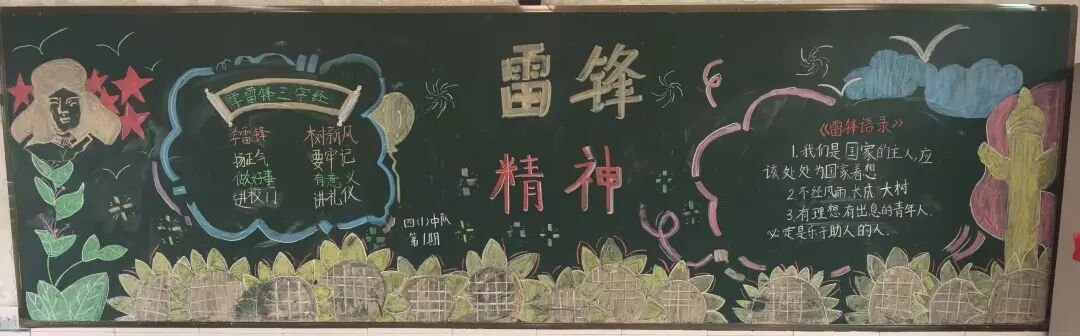 雷锋
精神
学雷锋三字经
学雷锋 树新风
扬正气 要牢记
做好事 有意义
进校门 讲礼仪
四(1)中队
第1期
《雷锋语录》
1.我们是国家的主人,应
该处处为国家着想
2.不经风雨,长成大树
3.有理想有出息的青年人.
必定是乐于助人的人.